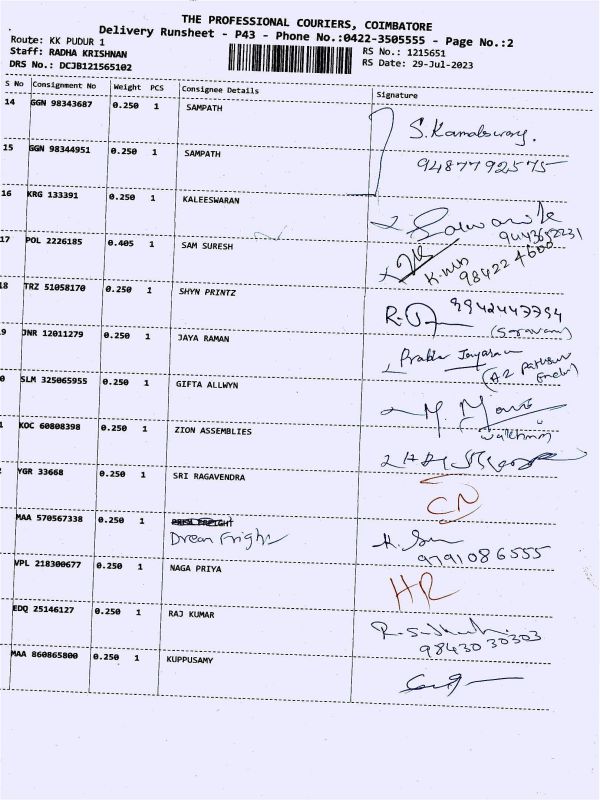 THE PROFESSIONAL COURIERS, COIMBATORE
Delivery Runsheet - P43 - Phone No.:0422-3505555 - Page No.:2
Route: KK PUDUR 1
Staff: RADHA KRISHNAN
DRS No.: DCJB121565102
RS No.: 1215651
RS Date: 29-Jul-2023
S No Consignment No Weight PCS Consignee Details Signature
14 GGN 98343687 0.250 1 SAMPATH
15 GGN 98344951 0.250 1 SAMPATH
9487792575
16 KRG 133391 0.250 1 KALEESWARAN
17 POL 2226185 0.405 1 SAM SURESH
98422 4600
18 TRZ 51058170 0.250 1 SHYN PRINTZ
9942443794
9 JNR 12011279 0.250 1 JAYA RAMAN
0 SLM 325065955 0.250 1 GIFTA ALLWYN
1 KOC 60808398 0.250 1 ZION ASSEMBLIES
2 YGR 33668 0.250 1 SRI RAGAVENDRA
CN
MAA 570567338 0.250 1
Dream Fright
9791086555
VPL 218300677 0.250 1 NAGA PRIYA
HR
EDQ 25146127 0.250 1 RAJ KUMAR
98430 30303
MAA 860865800 0.250 1 KUPPUSAMY